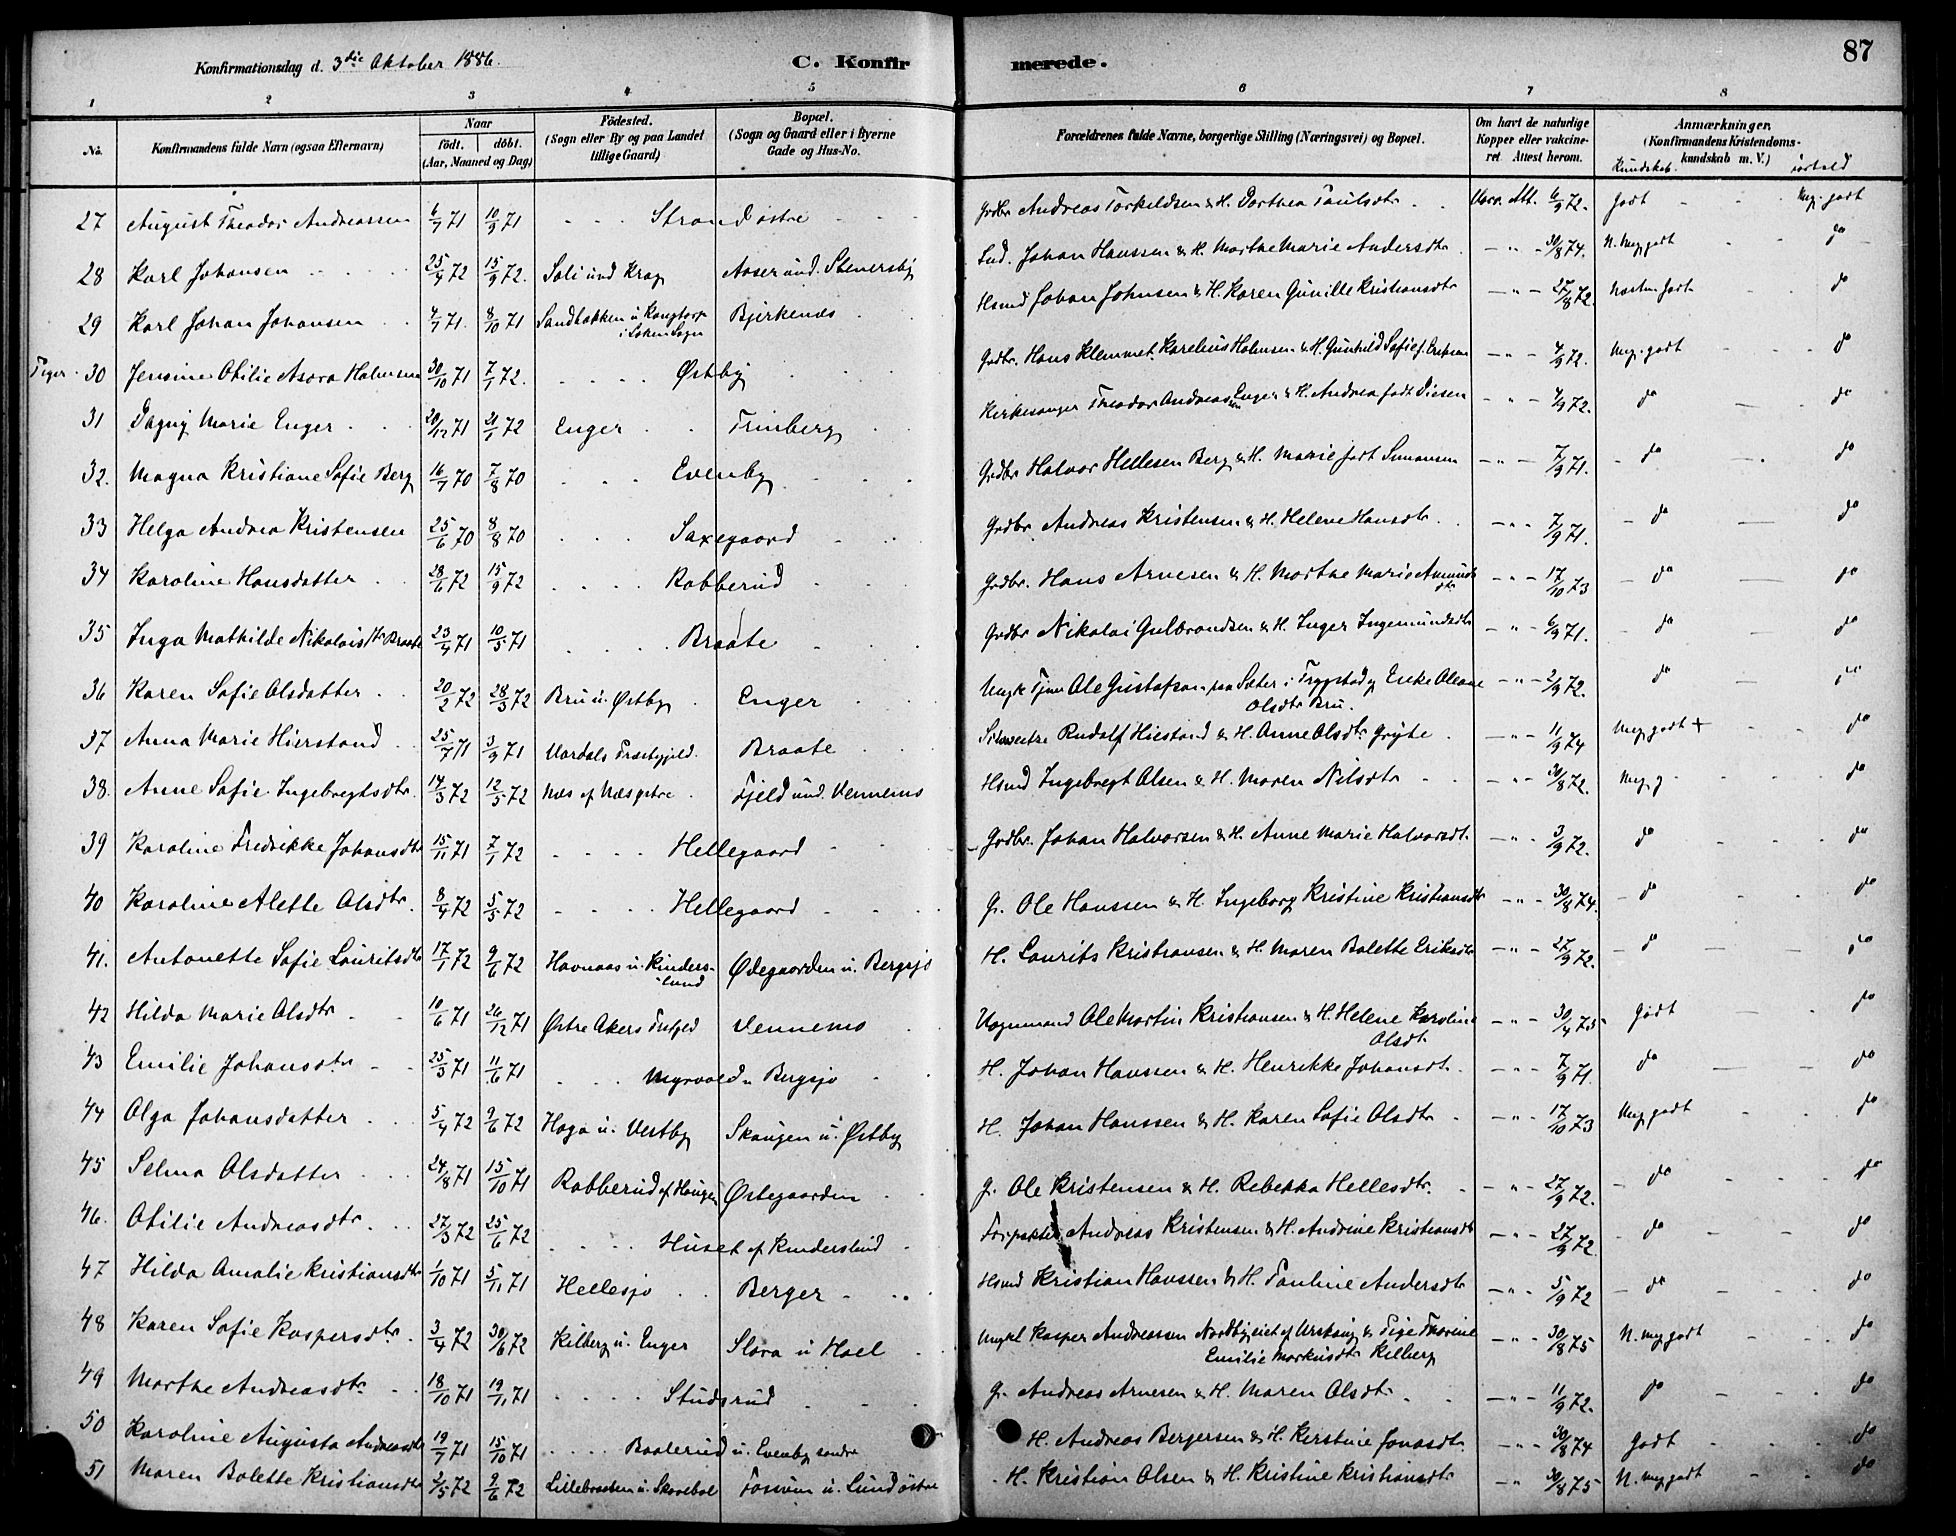 87
Konfirmationsdag d. 3die Oktober 1886.
C. Konfirmerede.
1 2 3 4 5 6 7 8
No. Konfirmandens fulde Navn (ogsaa Efternavn) Naar født. døbt. (Aar, Maaned og Dag) Fødested. (Sogn eller By og paa Landet tillige Gaard) Bopæl. (Sogn og Gaard eller i Byerne Gade og Hus-No. Forældrenes fulde Navne, borgerlige Stilling (Næringsvei) og Bopæl. Om havt de naturlige Kopper eller vakcineret Attest herom. Anmærkninger. (Konfirmandens Kristendomskundskab m. V.)
Kundskab. forhold
27 August Theodor Andreassen 6/7 71 10/9 71 - - - Strand østre - - - Grdbr Andreas Torkildsen & H. Dorthea Paulsdtr. Vacc. Att. 6/9 72. Godt - - Meg. godt
28 Karl Johansen 25/4 72 15/9 72. Soli und Krog Aaser und. Stenersby Ind. Johan Hanssen & H. Marthe Marie Andersdtr - " - 30/8 74. N. Meg godt - - do
29 Karl Johan Johansen 4/7 71. 8/10 71 Sandbakken u Kongtorp i Søken Sogn Bjerkenæs Hsmd Johan Johnsen & H. Karen Gunille Kristiansdtr - " - 27/8 72. Næsten Godt - do
Piger
30 Jensine Otilie Asora Halmsen 30/10 71 7/1 72. - - - Østby Grdbr. Hans Klemmet Karelius Halmsen & H. Gunhild Sofie f. Eriksen - " - 4/9 72. Meg. godt - - do
31 Dagny Marie Enger 20/12 71 21/1 72 Enger Trinberg Kirkesanger Theodor Andreassen Enger & H. Andrea født Diesen - " - 4/9 72. do - - do
32. Magna Kristiane Sofie Berg 16/7 70 7/8 70 - - - Evenby Grdbr Halvor Hellesen Berg & H. Marie født Simonsen - " - 7/9 71. - do - do
33 Helga Andrea Kristensen 25/6 70 8/8 70 - - - Saxegaard Grdbr. Andreas Kristensen & H. Helene Hansdtr. - " - 7/9 71. - do - do
34 Karoline Hansdatter 28/6 72 15/9 72 - - - Rabberud Grdbr. Hans Arnesen & H. Marthe Marie Amundsdtr - " - 17/10 73 - do - do
35 Inga Mathilde Nikolaisdtr Braate 23/4 71 10/5 71 - - - Braate Grdbr Nikolai Gulbrandsen & H. Inger Ingemundsdtr - " - 6/9 71. - do - do
36 Karen Sofie Olsdatter 20/2 72 28/3 72 Bru u. Østby Enger Ungk Tjener Ole Gustafson paa Sæter i Trygstad og Enke Oleane Olsdtr Bru. - " - 2/9 72. do - do
37 Anna Marie Hierstand 25/7 71 3/9 71 Vardals Præstegjeld. Braate Rudolf Hiestand & H. Anne Olsdtr Gryte - " - 11/9 74 Meg godt + - do
38. Anne Sofie Ingebregtsdtr. 14/3 72 12/5 72 Næs af Næs østre Fjeld und. Vennemo Hsmd Ingebregt Olsen & H. Maren Nilsdtr - " - 30/8 72. Meg. g - do
39 Karoline Fredrikke Johansdtr 15/11 71 7/1 72 - - - Hellegaard Grdbr. Johan Halvorsen & H. Anne Marie Halvorsdtr. - " - 3/9 72. do - do
40 Karoline Alette Olsdtr. 8/4 72 5/5 72 - - - Hellegaard G. Ole Hanssen & H. Ingeborg Kristine Kristiansdtr - " - 30/8 74. - do - do
41. Antonette Sofie Lauritsdtr 17/1 72 9/6 72 Havnaas u. Kinderslund Ødegaarden u. Bergsjo H. Laurits Kristiansen & H. Maren Bolette Eriksdtr - " - 27/9 72. - do - do
42 Hilda Marie Olsdtr 10/6 71 26/12 71 Østre Akers Prstgjed Vennemo Vognmand Ole Martin Kristiansen & H. Helene Karoline Olsdtr - " - 30/4 75 Godt - do
43 Emilie Johansdtr 25/3 71 11/6 71 - - - Myrvold u Bergsjo H. Johan Hanssen & H. Henrikke Johansdtr. - " - 7/9 71. do - do
44 Olga Johansdatter 5/4 72 9/6 72 Haga u. Vestby Skaugen u. Østby H. Johan Hanssen & H. Karen Sofie Olsdtr - " - 17/10 73 Meg godt - do
45 Selma Olsdatter 24/8 71 15/10 71 Rabberud af Haugen Østegaarden G. Ole Kristensen & H. Rebekka Hellesdtr. - " - 27/9 72. - do - do
46. Otilie Andreasdtr. 27/3 72 25/6 72 - - - Huset af Kinderslund Forpakter Andreas Kristensen & H. Andrine Kristiansdtr - " - 27/9 72. - do - do
47 Hilda Amalie Kristiansdtr 1/10 71 5/11 71 Hellesjo Berger Hsmd Kristian Hanssen & H. Pauline Andersdtr - " - 5/9 72 - do - do
48 Karen Sofie Kaspersdtr. 3/4 72 30/6 72 Kilberg u. Enger Slora u Hoel Ungkl Kasper Andreassen Nordbyeiet af Urskoug & Pige Thorine Emilie Markusdtr Kilberg - " - 30/8 75 N. meg godt - do
49 Marthe Andreasdtr. 18/10 71 19/11 71 - - - Studsrud G. Andreas Arnesen & H. Maren Olsdtr - " - 11/9 72. do - do
50 Karoline Augusta Andreasdtr 19/7 71 15/10 71 - - - Baalerud u. Evenby søndre H. Andreas Bergersen & H. Kerstine Jonasdtr. - " - 30/8 74 Godt - do
51 Maren Bolette Kristiansdtr 2/5 72 9/6 72 Lillebraaten u. Skarebøl Fossum u. Lund østre H. Kristian Olsen & H. Kristine Kristiansdtr - " - 30/8 75 N. meg godt - do